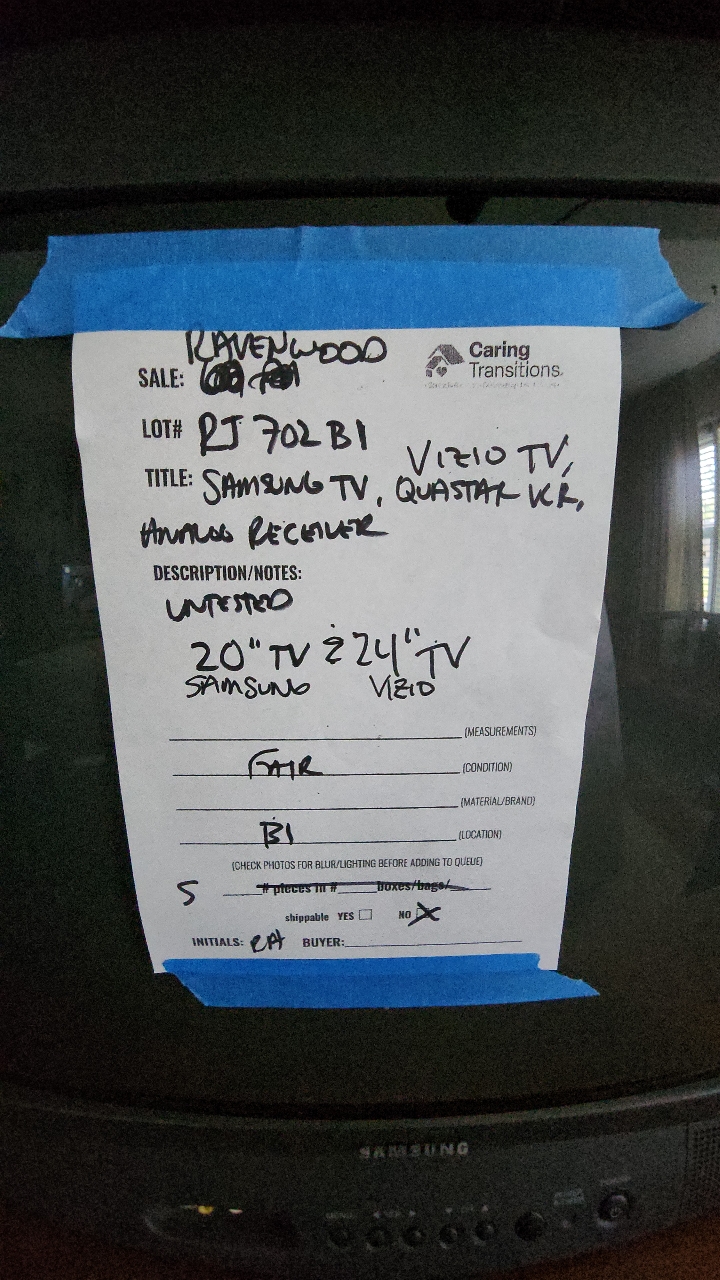 RAVENWOOD
SALE:
Caring
Transitions
LOT# RJ 702 B1
VIZIO TV,
TITLE: SAMSUNG TV, QUASTAR VCR,
ANALOG RECEIVER
DESCRIPTION/NOTES:
UNTESTED
20" TV & 24" TV
SAMSUNG VIZIO
(MEASUREMENTS)
FAIR (CONDITION)
(MATERIAL/BRAND)
B1 (LOCATION)
(CHECK PHOTOS FOR BLUR/LIGHTING BEFORE ADDING TO QUEUE)
5 # pieces in # boxes/bags/
shippable YES NO
INITIALS: BUYER:
SAMSUNG